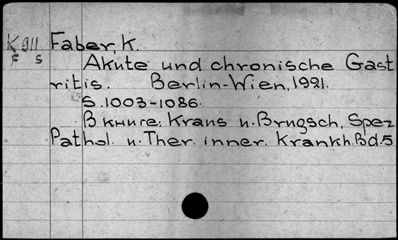 K 911 Faber, K.
F S Akute und chronische Gast
ritis. Berlin-Wien, 1921.
S. 1003-1086.
В книге: Kraus u. Brugsch, Spez
Pathol. u. Ther. inner. Krankh. Bd. 5